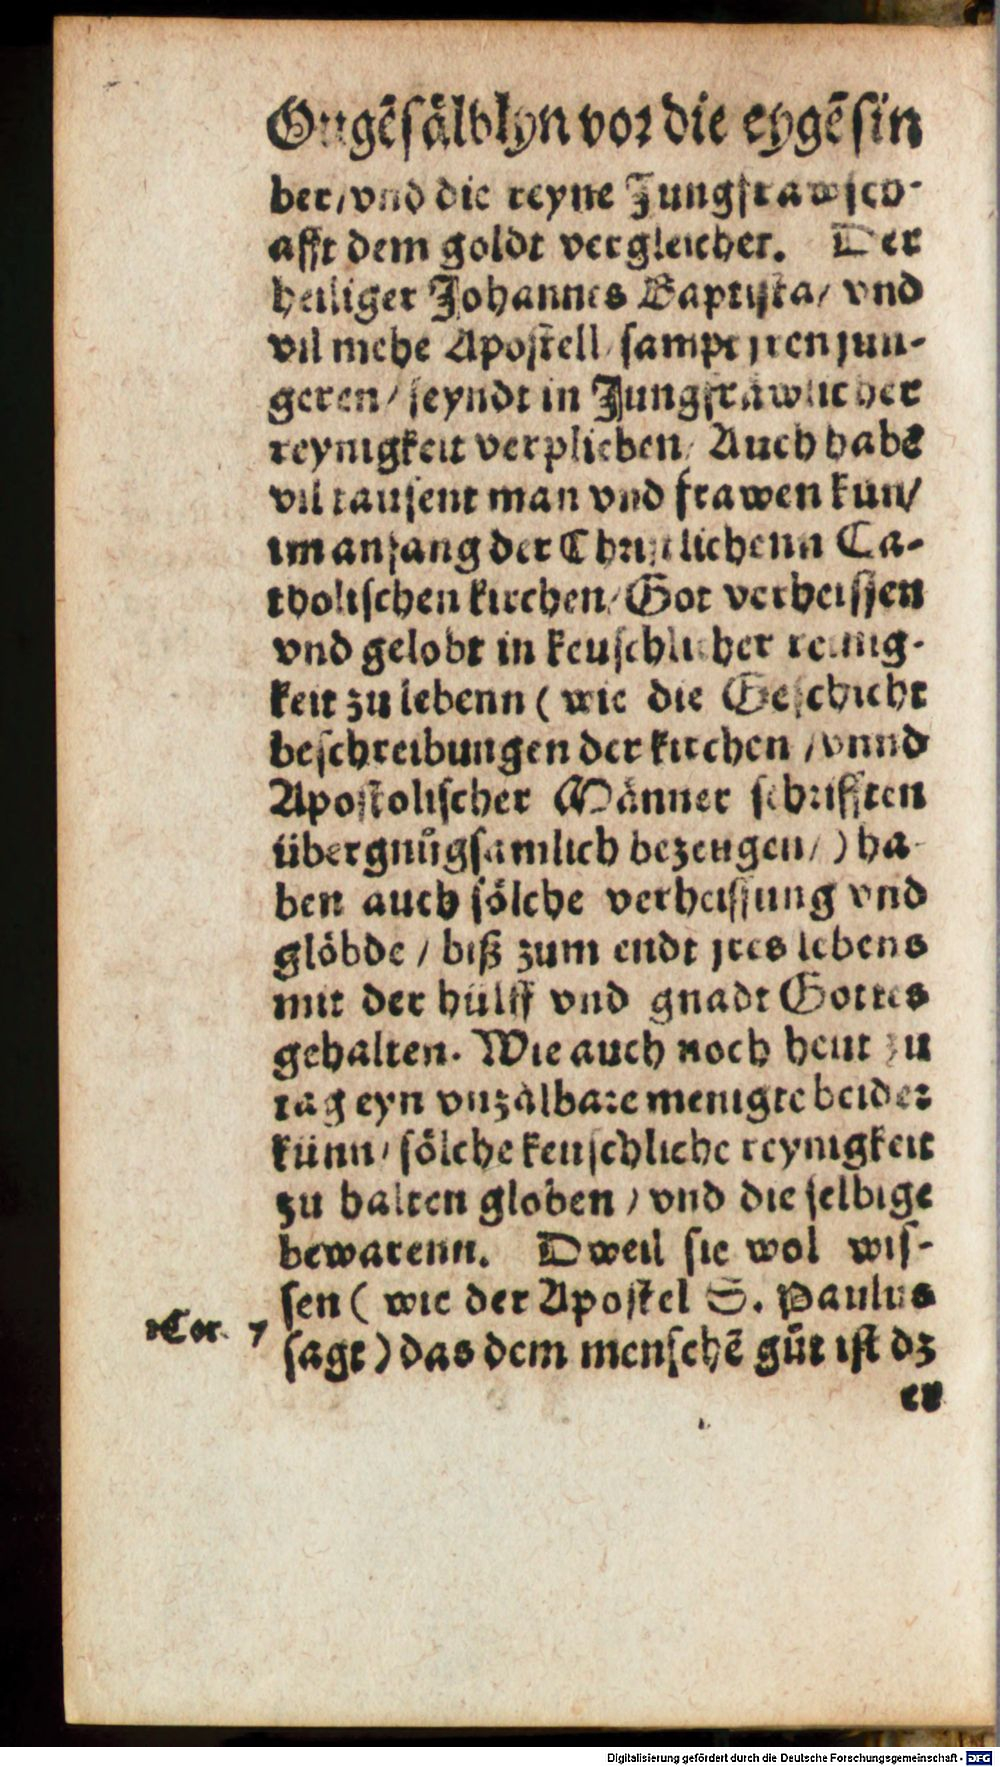 Ougẽsälblyn vor die eygẽsin
ber/vnd die reyne Jungfrawsch-
afft dem goldt vergleicher. Der
heiliger Johannes Baptista/ vnd
vil mehe Apostell/ sampt jren jun-
geren/ seyndt in Jungfräwlicher
reynigkeit verplieben/ Auch habẽ
vil tausent man vnd frawen kün/
im anfang der Christlichenn Ca-
tholischen kirchen/ Got verheissen
vnd gelobt in keuschlicher reinig-
keit zu lebenn (wie die Geschicht
beschreibungen der kirchen /vnnd
Apostolischer Männer schrifften
übergnůgsamlich bezeugen/) ha-
ben auch sölche verheissung vnd
glöbde / biß zum endt jres lebens
mit der hülff vnd gnadt Gottes
gehalten. Wie auch noch heut zu
tag eyn vnzälbare menigte beider
künn/ sölche keuschliche reynigkeit
zu halten globen / vnd die selbige
bewarenn. Dweil sie wol wis-
sen ( wie der Apostel S. Paulus
1.Cor. 7
sagt ) das dem menschẽ gůt ist dz
er
Digitalisierung gefördert durch die Deutsche Forschungsgemeinschaft - DFG